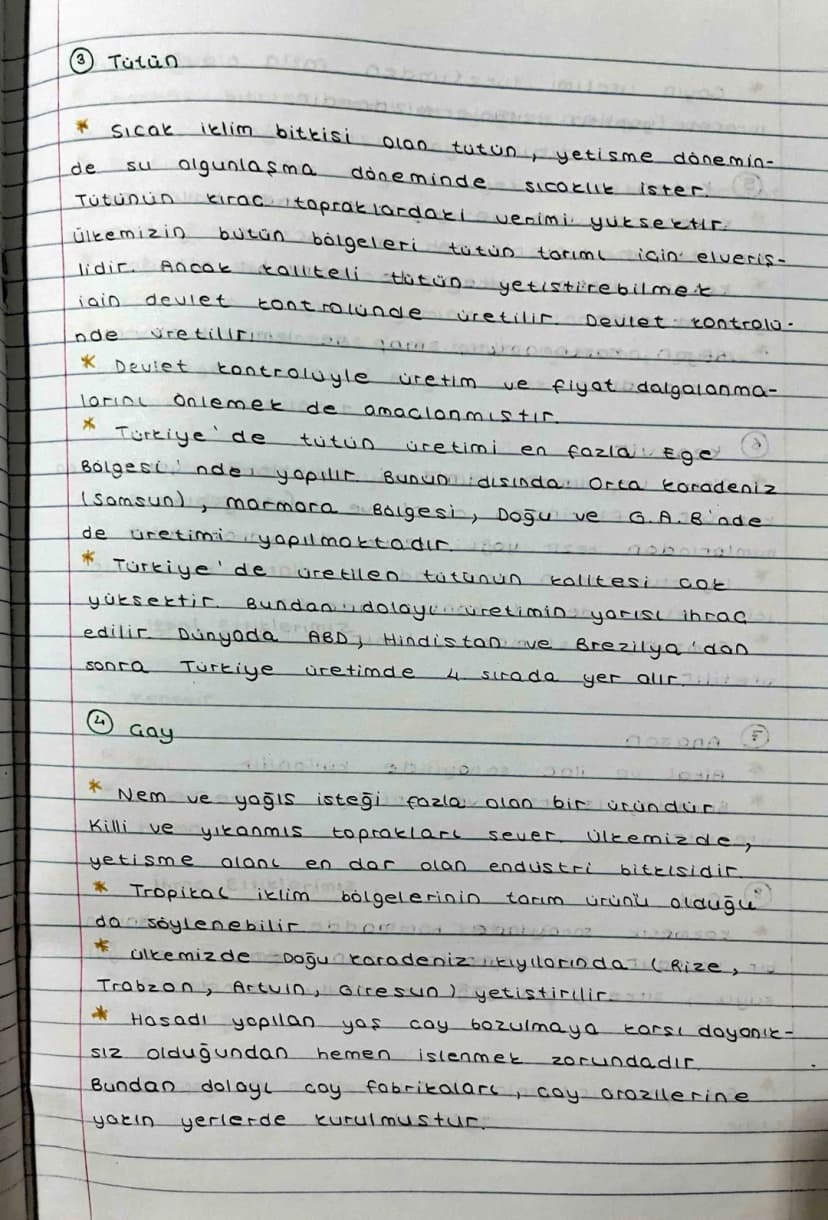 ③ Tütün
* Sıcak iklim bitkisi olan tütün, yetisme dönemin-
de su olgunlaşma döneminde sıcaklık ister.
Tütünün kırac topraklardaki verimi yüksektir.
ülkemizin bütün bölgeleri tütün tarımı icin elveriş-
lidir. Ancak kaliteli tütün yetistirebilmek
icin devlet kontrolünde üretilir. Devlet kontrolü-
nde üretilir.
* Devlet kontrolüyle üretim ve fiyat dalgalanma-
larını önlemek de amaclanmıstır.
* Türkiye'de tütün üretimi en fazla Ege
Bölgesi'nde yapılır. Bunun dısında Orta karadeniz
(Samsun), marmara Bölgesi, Doğu ve G.A.B'nde
de üretimi yapılmaktadır.
* Türkiye'de üretilen tütünün kalitesi cok
yüksektir. Bundan dolayı üretimin yarısı ihrac
edilir. Dünyada ABD, Hindistan ve Brezilya'dan
sonra Türkiye üretimde 4. sırada yer alır.
④ Cay
* Nem ve yağıs isteği fazla olan bir üründür.
Killi ve yıkanmıs toprakları sever. ülkemizde,
yetisme alanı en dar olan endüstri bitkisidir.
* Tropikal iklim bölgelerinin tarım ürünü olduğu
da söylenebilir.
* ülkemizde Doğu karadeniz kıyılarında (Rize,
Trabzon, Artvin, Giresun) yetistirilir.
* Hasadı yapılan yaş cay bozulmaya karsı dayanık-
sız olduğundan hemen islenmek zorundadır.
Bundan dolayı cay fabrikaları, cay arazilerine
yakın yerlerde kurulmustur.